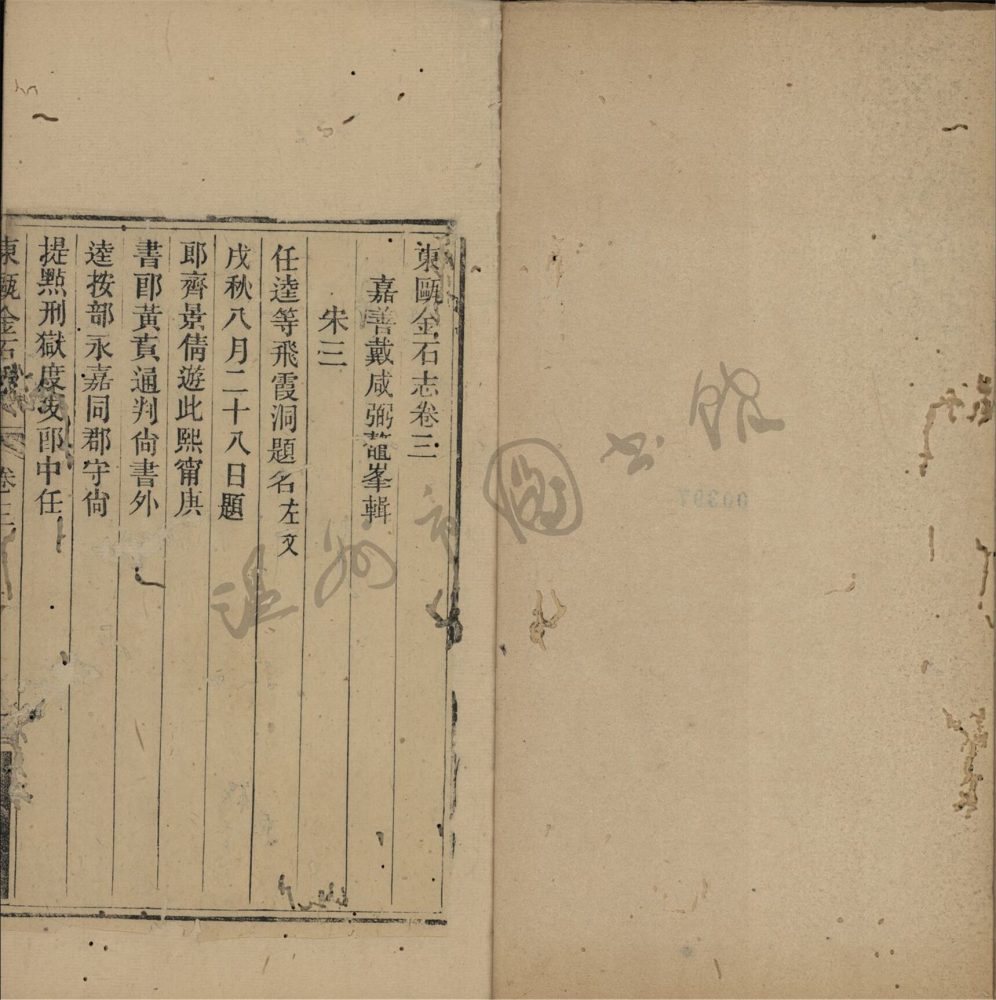 東甌金石志卷三
嘉善戴咸弼鼇峯輯
宋三
任逵等飛霞洞題名左文
戌秋八月二十八日題
郎齊景倩遊此熙甯庚
書郎黃賁通判尚書外
逵按部永嘉同郡守尚
提點刑獄度支郎中任
東甌金石 卷三
温州市圖书館
00397